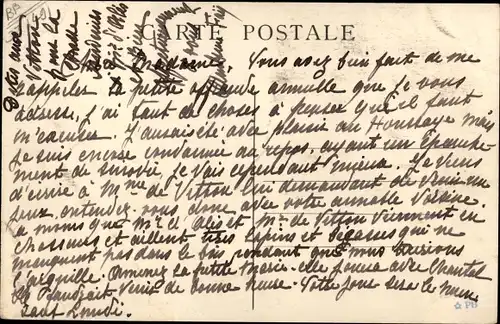 CARTE POSTALE
Madame. Vous avez bien fait de me
rappeler la petite offrande annuelle que je vous
adresse, j'ai tant de choses à penser qu'il faut
m'excuser. J'aurais été avec plaisir au Houssage mais
je suis encore condamnée au repos, ayant un épanche-
ment de sinovie, je vais cependant mieux. Je viens
d'écrire à Mme de Vitton lui demandant de venir un
jour, entendez vous donc avec votre aimable voisine.
a moins que Mr d' et Mr de Vitton viennent en
chasseurs et aillent tirer lapins et bécasses qui ne
manquent pas dans le bois pendant que nous tirerions
l'aiguille. Amenez la petite Marie elle jouera avec Chantal
Il faudrait venir de bonne heure. Votre jour sera le
sauf Lundi.
PB